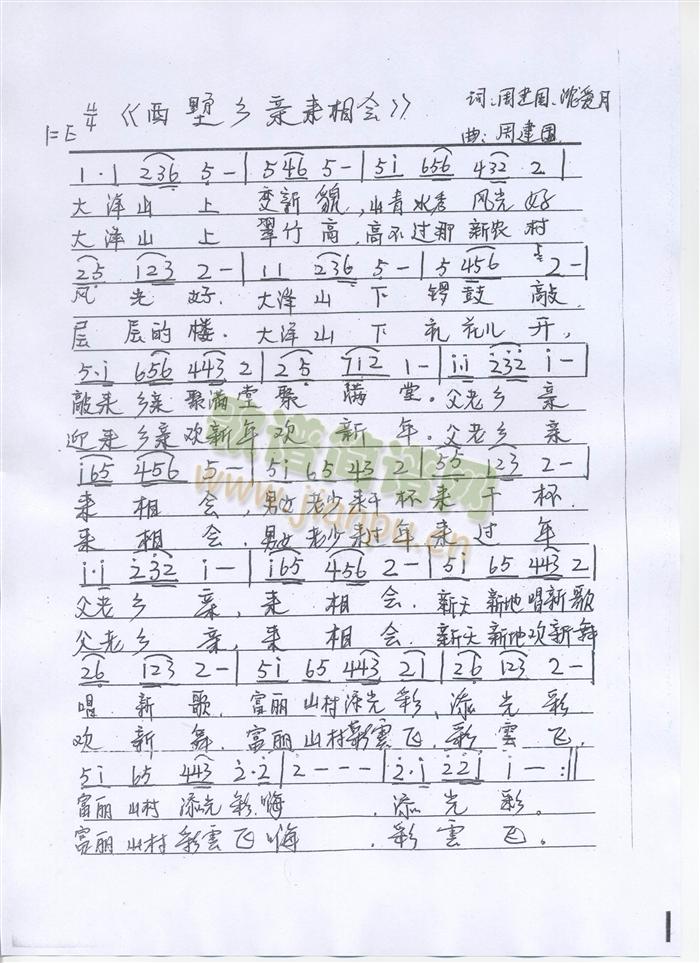 1=E 4/4 《西墅乡亲来相会》 词:周建国、沈爱月
曲:周建国
1·1 236 5 - | 546 5 - | 5i 656 432 2 |
大泽山 上 变新 貌,山青水秀 风光 好
大泽山 上 翠竹 高,高不过那 新农 村
25 123 2 - | 11 236 5 - | 5 456 2 - |
风 光 好. 大泽山 下 锣鼓 敲.
层 层的楼. 大泽山 下 礼花儿 开,
5·i 656 443 2 | 25 712 1 - | ii 232 i - |
敲来乡亲 聚满堂 聚 满 堂。父老乡 亲
迎来乡亲欢新年欢 新 年.父老乡 亲
i65 456 5 - | 5i 65 43 2 | 55 123 2 - |
来 相 会,男女老少来干杯来 干 杯.
来 相 会,男女老少来过年来过 年
i·i 232 i - | i65 456 2 - | 5i 65 443 2 |
父老乡 亲,来 相 会.新天新地唱新歌
父老乡 亲,来 相 会.新天新地欢新舞
26 123 2 - | 5i 65 443 2i | 26 123 2 - |
唱 新 歌.富丽山村添光彩、添 光 彩
欢 新 舞.富丽山村彩雲飞.彩 雲 飞,
5i 65 443 2·2 | 2 - - - | 2·i 22i i - :||
富丽山村 添光彩.嗨 . 添 光 彩。
富丽山村彩雲飞嗨 . 彩 雲 飞。
歌谱简谱网
www.jianpu.cn